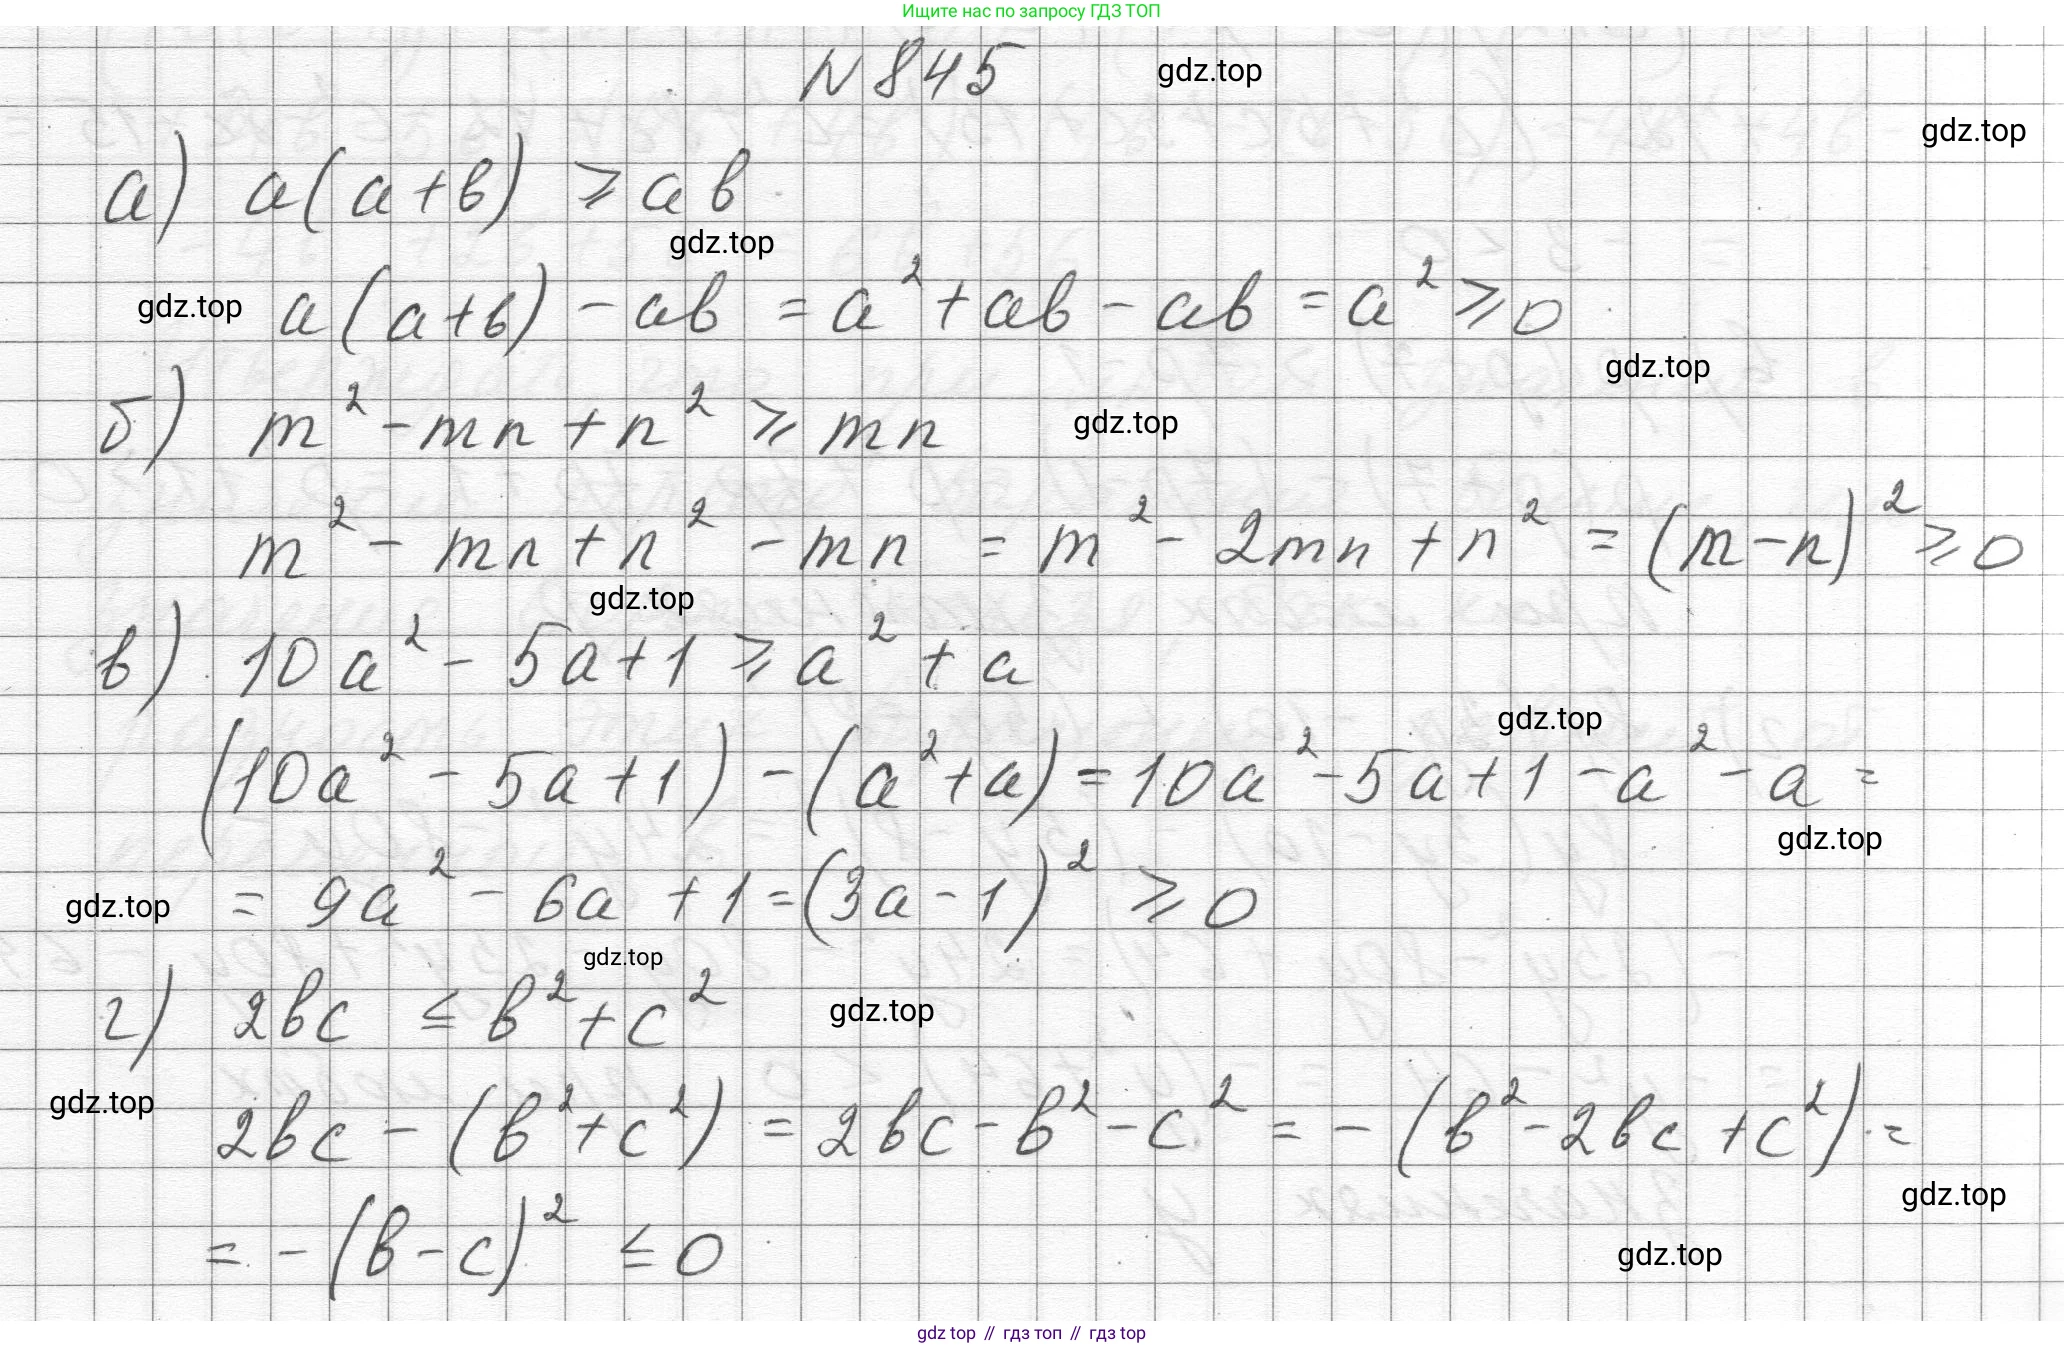 Ищите нас по запросу ГДЗ ТОП
N 845 gdz.top
gdz.top
а) a(a+b) ⩾ ab
gdz.top
gdz.top a(a+b) - ab = a² + ab - ab = a² ⩾ 0
gdz.top
б) m² - mn + n² ⩾ mn gdz.top
m² - mn + n² - mn = m² - 2mn + n² = (m-n)² ⩾ 0
gdz.top
в) 10a² - 5a + 1 ⩾ a² + a
gdz.top
(10a² - 5a + 1) - (a² + a) = 10a² - 5a + 1 - a² - a =
gdz.top
gdz.top = 9a² - 6a + 1 = (3a - 1)² ⩾ 0
gdz.top
г) 2bc ≤ b² + c² gdz.top
gdz.top
2bc - (b² + c²) = 2bc - b² - c² = - (b² - 2bc + c²) =
gdz.top
= - (b - c)² ≤ 0
gdz.top
gdz top // гдз топ // гдз top